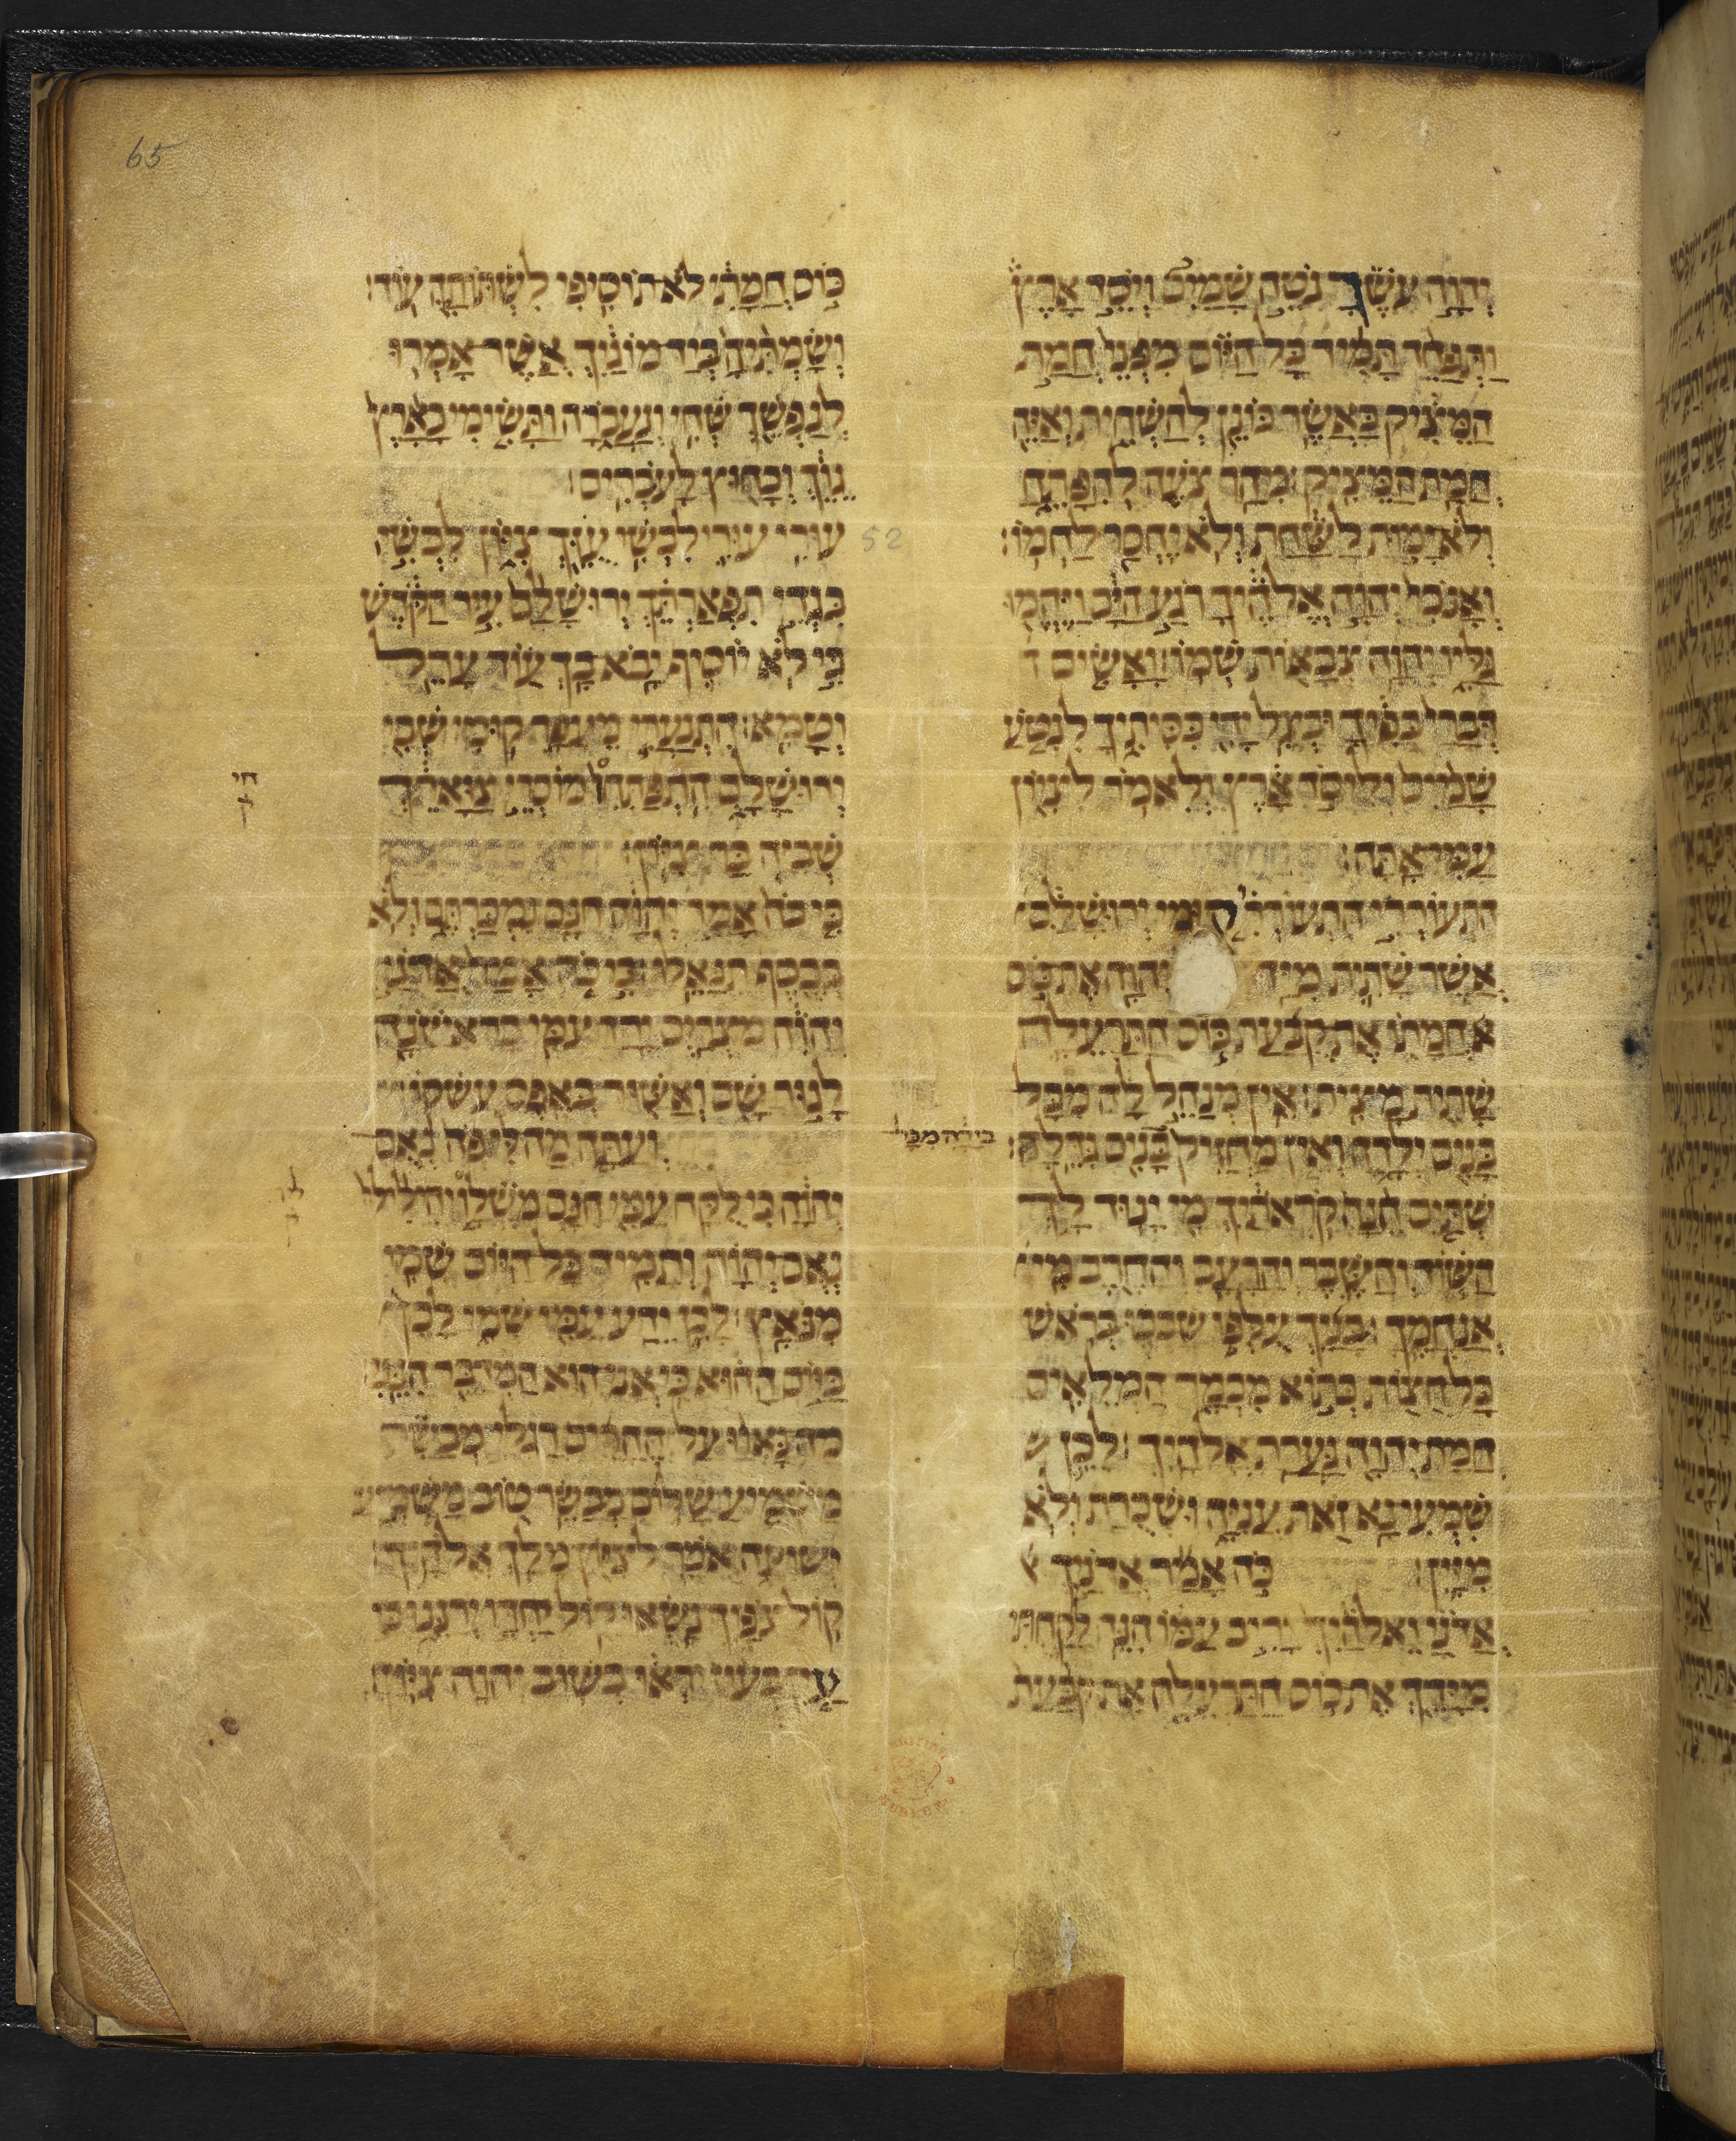 יהוה עשך נטה שמים ויסד ארץ
ותפחד תמיד כל היום מפני חמת
המציק כאשר כונן להשחית ואיה
חמת המציק: מהר צעה להפתח
ולא ימות לשחת ולא יחסר לחמו:
ואנכי יהוה אלהיך רגע הים ויהמו
גליו יהוה צבאות שמו: ואשים ד
דברי בפיך ובצל ידי כסיתיך לנטע
שמים וליסד ארץ ולאמר לציון
עמי אתה:
התעוררי התעוררי קומי ירושלם
אשר שתית מיד יהוה את כוס
חמתו את קבעת כוס התרעלה
שתית מצית: אין מנהל לה מכל
בנים ילדה ואין מחזיק בנים גדלה:
בידה מכל
שתים הנה קראתיך מי ינוד לך
השוד והשבר והרעב והחרב מי
אנחמך: בניך עלפו שכבו בראש
כל חצות כתוא מכמר המלאים
חמת יהוה גערת אלהיך: לכן
שמעי נא זאת עניה ושכרת ולא
מיין: כה אמר אדניך
אדני ואלהיך יריב עמו הנה לקחתי
מידך את כוס התרעלה את קבעת
65
כוס חמתי לא תוסיפי לשתותה עוד:
ושמתיה ביד מוגיך אשר אמרו
לנפשך שחי ונעברה ותשימי כארץ
גוך וכחוץ לעברים:
52
עורי עורי לבשי עזך ציון לבשי
בגדי תפארתך ירושלם עיר הקדש
כי לא יוסיף יבא בך עוד ערל
וטמא: התנערי מעפר קומי שבי
ירושלם התפתחו מוסרי צוארך
חי
ק
שביה בת ציון:
כי כה אמר יהוה חנם נמכרתם ולא
בכסף תגאלו: כי כה אמר אדני
יהוה מצרים ירד עמי בראשנה
לגור שם ואשור באפס עשקו:
ועתה מה לי פה נאם
יהוה כי לקח עמי חנם משלו יהילילו
לי
ק
נאם יהוה ותמיד כל היום שמי
מנאץ: לכן ידע עמי שמי לכן
ביום ההוא כי אני הוא המדבר הנני:
מה נאוו על ההרים רגלי מבשר
משמיע שלום מבשר טוב משמיע
ישועה אמר לציון מלך אלהיך:
קול צפיך נשאו קול יחדו ירננו כי
עין בעין יראו בשוב יהוה ציון: